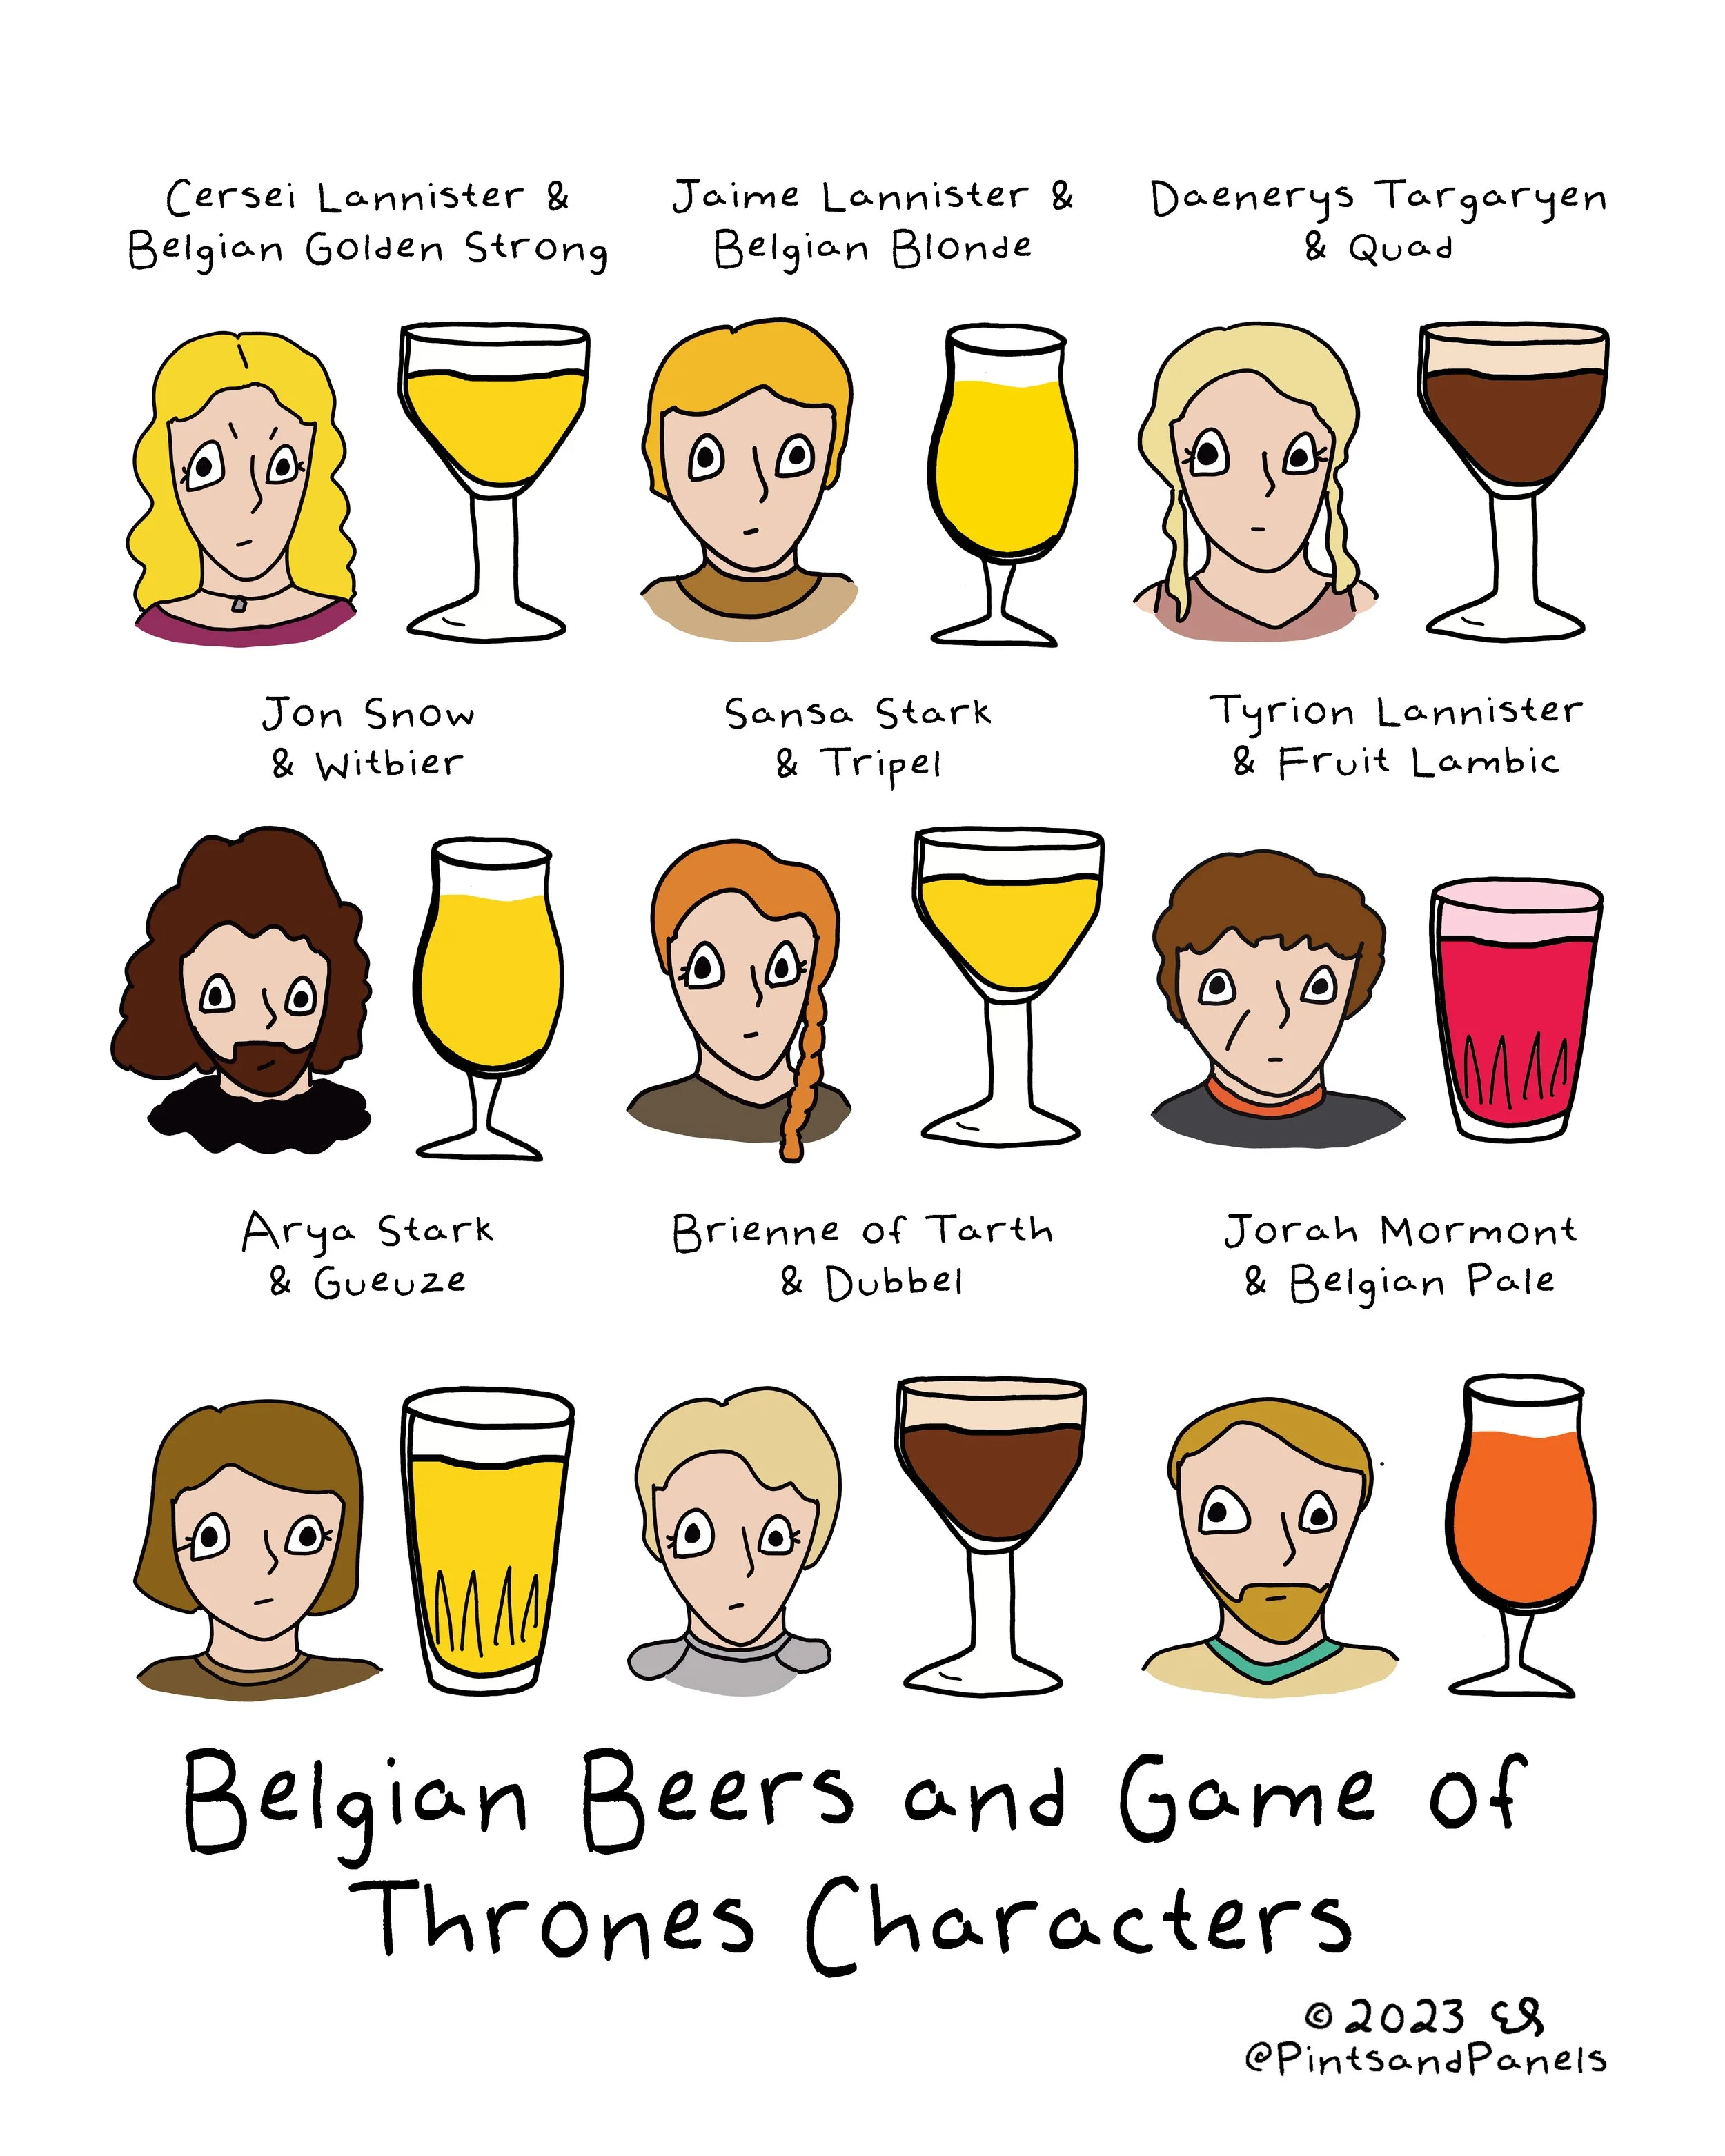 Cersei Lannister &
Belgian Golden Strong
Jaime Lannister &
Belgian Blonde
Daenerys Targaryen
& Quad
Jon Snow
& Witbier
Sansa Stark
& Tripel
Tyrion Lannister
& Fruit Lambic
Arya Stark
& Gueuze
Brienne of Tarth
& Dubbel
Jorah Mormont
& Belgian Pale
Belgian Beers and Game of
Thrones Characters
© 2023 ES
@PintsandPanels